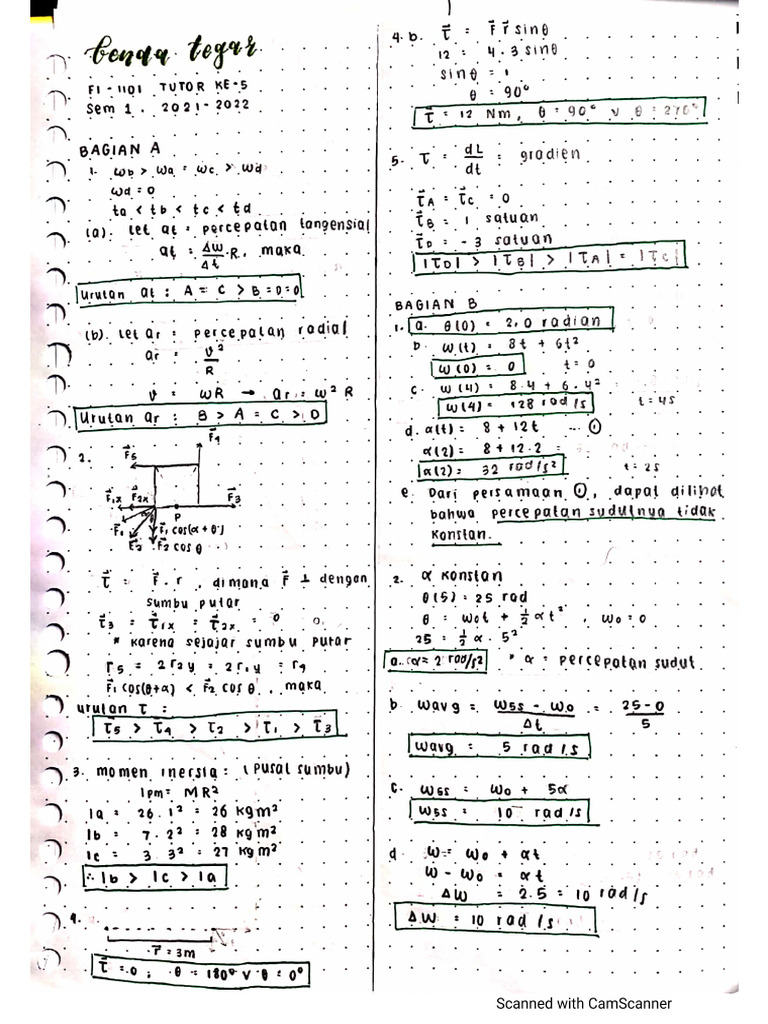 benda tegar
FI-1101 TUTOR KE-5
Sem 1. 2021-2022
BAGIAN A
1. ωb > ωa = ωc > ωd
ωd = 0
ta < tb < tc < td
(a). Let at = percepatan tangensial
at = Δω/Δt . R, maka
Urutan at : A = C > B = D = 0
(b). Let ar = percepatan radial
ar = v²/R
v = ωR → ar = ω² R
Urutan ar : B > A = C > D
2.
F⃗4
F⃗5
F⃗1x F⃗2x F⃗3
P
F⃗1 F⃗1 cos(α+θ)
F⃗2 F⃗2 cos θ
τ⃗ = F⃗ . r , dimana F⃗ ⊥ dengan
sumbu putar
τ⃗3 = τ⃗1x = τ⃗2x = 0
* karena sejajar sumbu putar
r5 = 2r2y = 2r1y = r4
F⃗1 cos(θ+α) < F⃗2 cos θ , maka
urutan τ :
τ⃗5 > τ⃗4 > τ2 > τ1 > τ⃗3
3. momen inersia : (pusat sumbu)
Ipm = MR²
Ia = 26 . 1² = 26 kg m²
Ib = 7 . 2² = 28 kg m²
Ic = 3 . 3² = 27 kg m²
∴ Ib > Ic > Ia
4.
r⃗ = 3m
τ⃗ = 0 ; θ = 180° v θ = 0°
4. b. τ⃗ = F⃗ r⃗ sinθ
12 = 4 . 3 sinθ
sinθ = 1
θ = 90°
τ⃗ = 12 Nm, θ = 90° v θ = 270°
5. τ = dL/dt = gradien
τ⃗A = τ⃗C = 0
τ⃗B = 1 satuan
τ⃗D = -3 satuan
|τD| > |τB| > |τA| = |τC|
BAGIAN B
1. a. θ(0) = 2,0 radian
b. ω(t) = 8t + 6t²
ω(0) = 0 t = 0
c. ω(4) = 8.4 + 6.4²
ω(4) = 128 rad/s t = 4s
d. α(t) = 8 + 12t ... ①
α(2) = 8 + 12.2
α(2) = 32 rad/s² t = 2s
e. Dari persamaan ①, dapat dilihat
bahwa percepatan sudutnya tidak
konstan.
2. α konstan
θ(5) = 25 rad
θ = ω0t + ½ αt² , ω0 = 0
25 = ½ α . 5²
a. α = 2 rad/s² * α = percepatan sudut
b. ωavg = ω5s - ω0/Δt = 25-0/5
ωavg = 5 rad/s
c. ω5s = ω0 + 5α
ω5s = 10 rad/s
d. ω = ω0 + αt
ω - ω0 = αt
Δω = 2.5 = 10 rad/s
Δω = 10 rad/s
Scanned with CamScanner